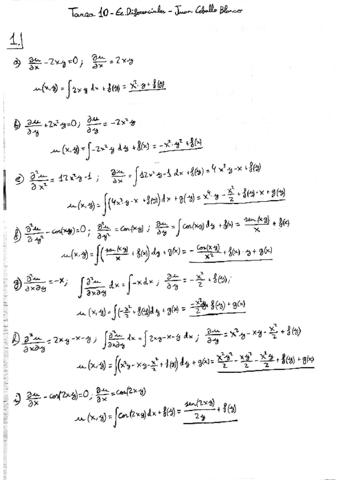 Tarea 10 - Ec. Diferenciales - Juan Ceballo Blanco
1.)
a) ∂u/∂x - 2xy = 0 ; ∂u/∂x = 2x·y
u(x,y) = ∫2xy dx + f(y) = x²·y + f(y)
b) ∂u/∂y + 2x²y = 0 ; ∂u/∂y = -2x²y
u(x,y) = ∫-2x²y dy + f(x) = -x²·y² + f(x)
c) ∂²u/∂x² = 12x²y - 1 ; ∂u/∂x = ∫12x²y - 1 dx + f(y) = 4x³y - x + f(y)
u(x,y) = ∫(4x³·y - x + f(y)) dx + g(y) = x⁴y - x²/2 + f(y)·x + g(y)
f) ∂²u/∂y² - cos(xy) = 0 ; ∂²u/∂y² = cos(xy) ; ∂u/∂y = ∫cos(xy) dy + f(x) = sen(xy)/x + f(x)
u(x,y) = ∫(sen(xy)/x + f(x)) dy + g(x) = -cos(xy)/x² + f(x)·y + g(x)
g) ∂²u/∂x∂y = -x ; ∫∂²u/∂x∂y dx = ∫-x dx ; ∂u/∂y = -x²/2 + f(y) ;
u(x,y) = ∫(-x²/2 + f(y)) dy + g(x) = -x²y/2 + f(y) + g(x)
∂²u/∂x∂y = 2xy - x - y ; ∫∂²u/∂x∂y dx = ∫2xy - x - y dx ; ∂u/∂y = x²y - xy - x²/2 + f(y)
u(x,y) = ∫(x²y - xy - x²/2 + f(y)) dy + g(x) = x²y²/2 - xy²/2 - x²y/2 + f(y) + g(x)
∂u/∂x - cos(2xy) = 0 ; ∂u/∂x = cos(2xy)
u(x,y) = ∫cos(2xy) dx + f(y) = sen(2xy)/2y + f(y)